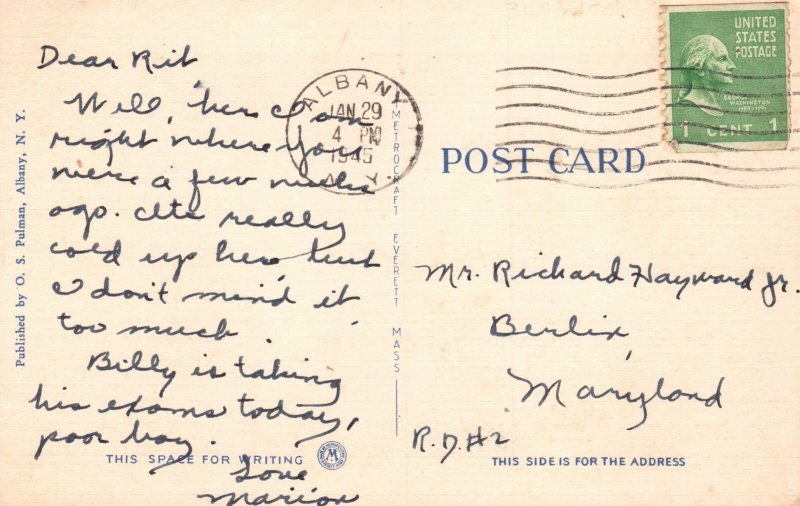 Dear Rit
Well, here I am
right where you
were a few weeks
ago. Its really
cold up here but
I don't mind it
too much.
Billy is taking
his exams today,
poor boy.
Love
Marion
THIS SPACE FOR WRITING
Published by O. S. Pulman, Albany, N. Y.
METROCRAFT EVERETT MASS
ALBANY
JAN 29
4 PM
1945
N. Y.
UNITED
STATES
POSTAGE
GEORGE
WASHINGTON
1789-1797
1 CENT 1
POST CARD
Mr. Richard Hayward Jr.
Berlin,
Maryland
R.D.#2
THIS SIDE IS FOR THE ADDRESS